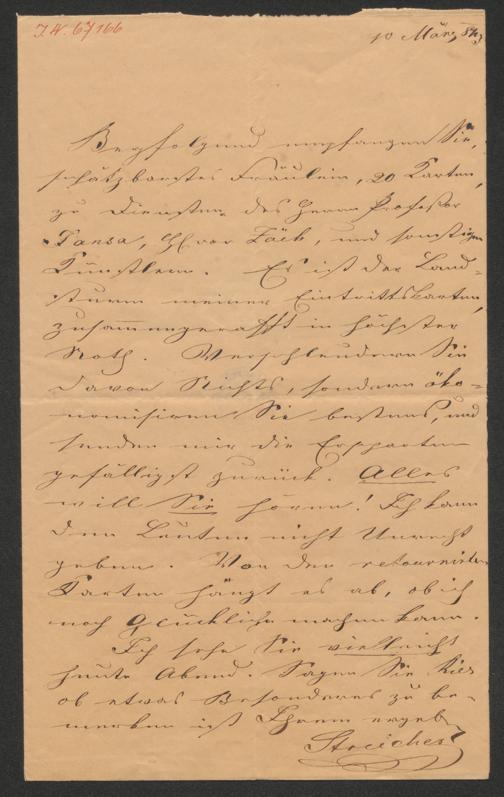 I.N. 67166
10 März
Beyfolgend empfangen Sie,
schätzbarstes Fräulein, 20 Karten,
zu Diensten des Herrn Professor
Jansa, und sonstigen
Künstlern. Es ist der Land-
sturm meiner Eintrittskarten,
zusammengerafft in höchster
Noth. Verschleudern Sie
davon Nichts, sondern öko-
nomisiren Sie bestens, und
senden mir die Ersparten
gefälligst zurück. Alles
will Sie hören! Ich kann
den Leuten nicht Unrecht
geben. Von den retournirten
Karten hängt es ab, ob ich
noch Glückliche machen kann.
Ich sehe Sie vielleicht
heute Abend. Sagen Sie
ob etwas Besonderes zu be-
merken ist Ihrem ergeb
Streicher